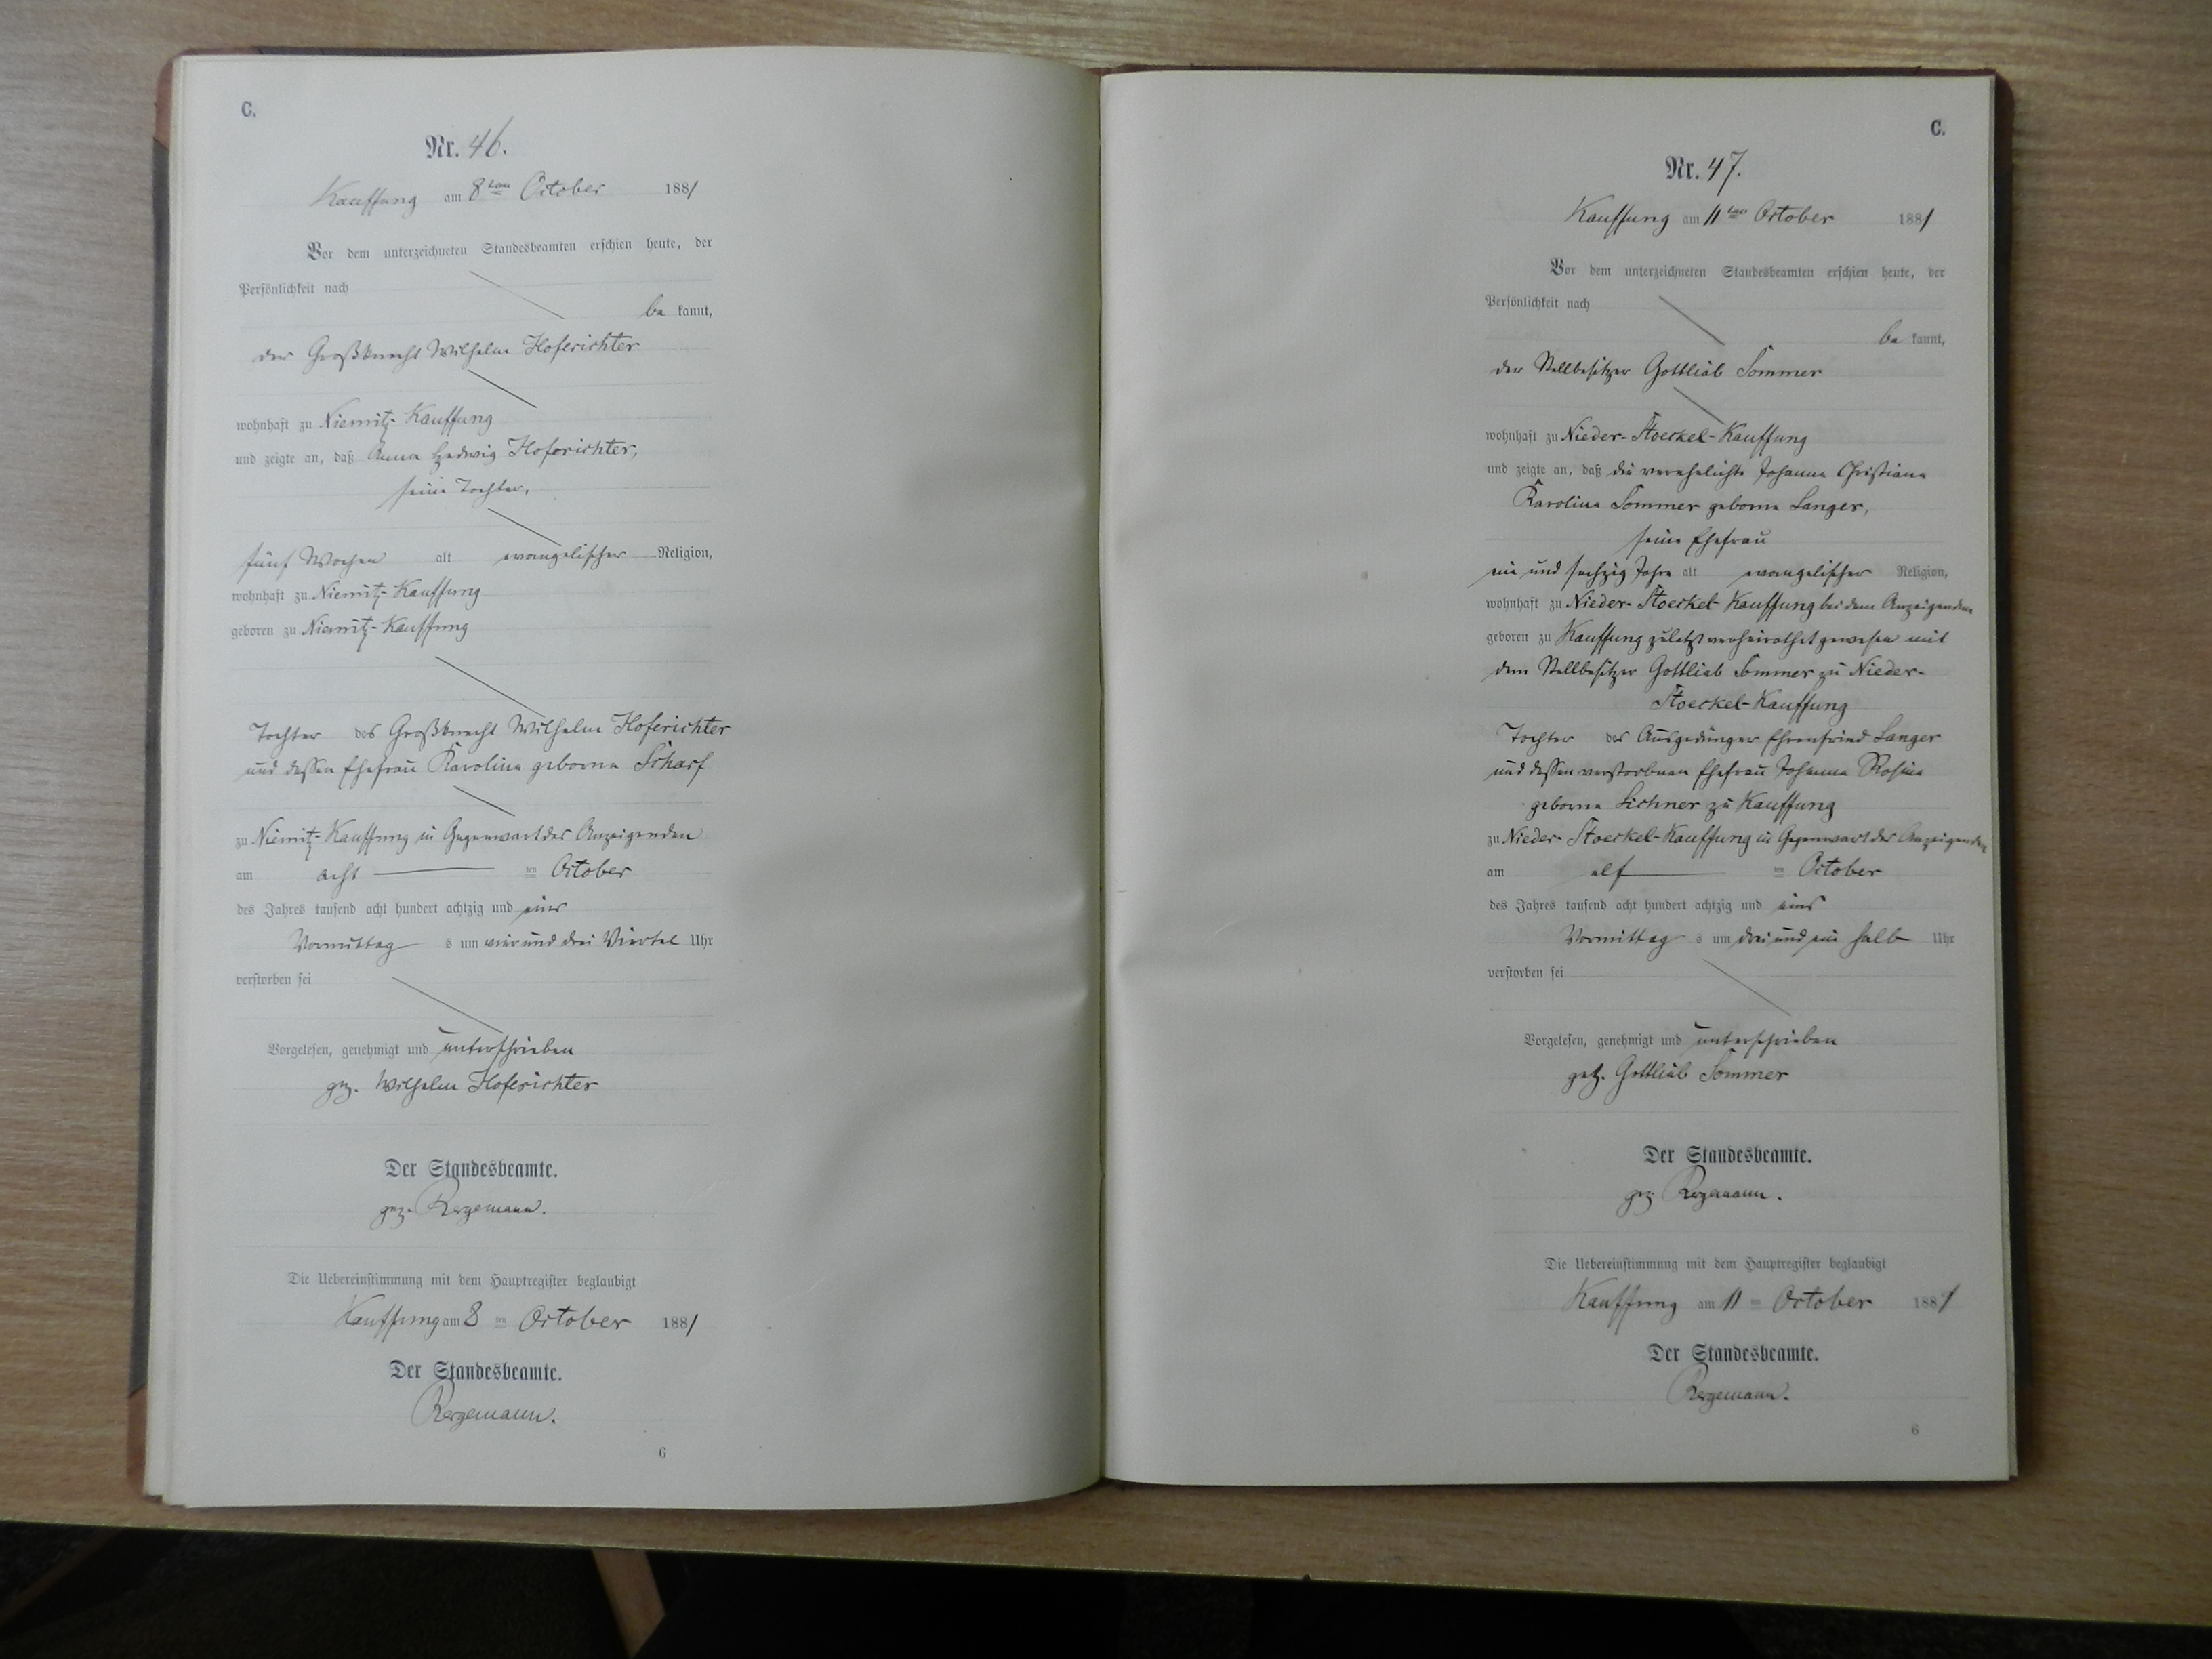 C.
Nr. 46.
Kauffung am 8ten October 1881
Vor dem unterzeichneten Standesbeamten erschien heute, der
Persönlichkeit nach
be kannt,
der Großknecht Wilhelm Hoferichter
wohnhaft zu Niemitz-Kauffung
und zeigte an, daß Anna Hedwig Hoferichter,
seine Tochter,
fünf Wochen alt evangelischer Religion,
wohnhaft zu Niemitz-Kauffung
geboren zu Niemitz-Kauffung
Tochter des Großknecht Wilhelm Hoferichter
und dessen Ehefrau Karoline geborne Scharf
zu Niemitz-Kauffung in Gegenwart des Anzeigenden
am acht ten October
des Jahres tausend acht hundert achtzig und eins
Vormittag s um vier und drei Viertel Uhr
verstorben sei
Vorgelesen, genehmigt und unterschrieben
gez. Wilhelm Hoferichter
Der Standesbeamte.
gez.
Die Uebereinstimmung mit dem Hauptregister beglaubigt
Kauffung am 8 ten October 1881
Der Standesbeamte.
6
C.
Nr. 47.
Kauffung am 11ten October 1881
Vor dem unterzeichneten Standesbeamten erschien heute, der
Persönlichkeit nach
be kannt,
der Stellbesitzer Gottlieb Sommer
wohnhaft zu Nieder-Stoeckel-Kauffung
und zeigte an, daß die verehelichte Johanne Christiane
Karoline Sommer geborne Langer,
seine Ehefrau
ein und sechzig Jahre alt evangelischer Religion,
wohnhaft zu Nieder-Stoeckel Kauffung bei dem Anzeigenden
geboren zu Kauffung zuletzt verheirathet gewesen mit
dem Stellbesitzer Gottlieb Sommer zu Nieder-
Stoeckel-Kauffung
Tochter des Ausgedinger Ehrenfried Langer
und dessen verstorbnen Ehefrau Johanne Rosine
geborne zu Kauffung
zu Nieder-Stoeckel-Kauffung in Gegenwart des Anzeigenden
am elf ten October
des Jahres tausend acht hundert achtzig und eins
Vormittag s um drei und ein halb Uhr
verstorben sei
Vorgelesen, genehmigt und unterschrieben
gez. Gottlieb Sommer
Der Standesbeamte.
gez
Die Uebereinstimmung mit dem Hauptregister beglaubigt
Kauffung am 11 ten October 1881
Der Standesbeamte.
6